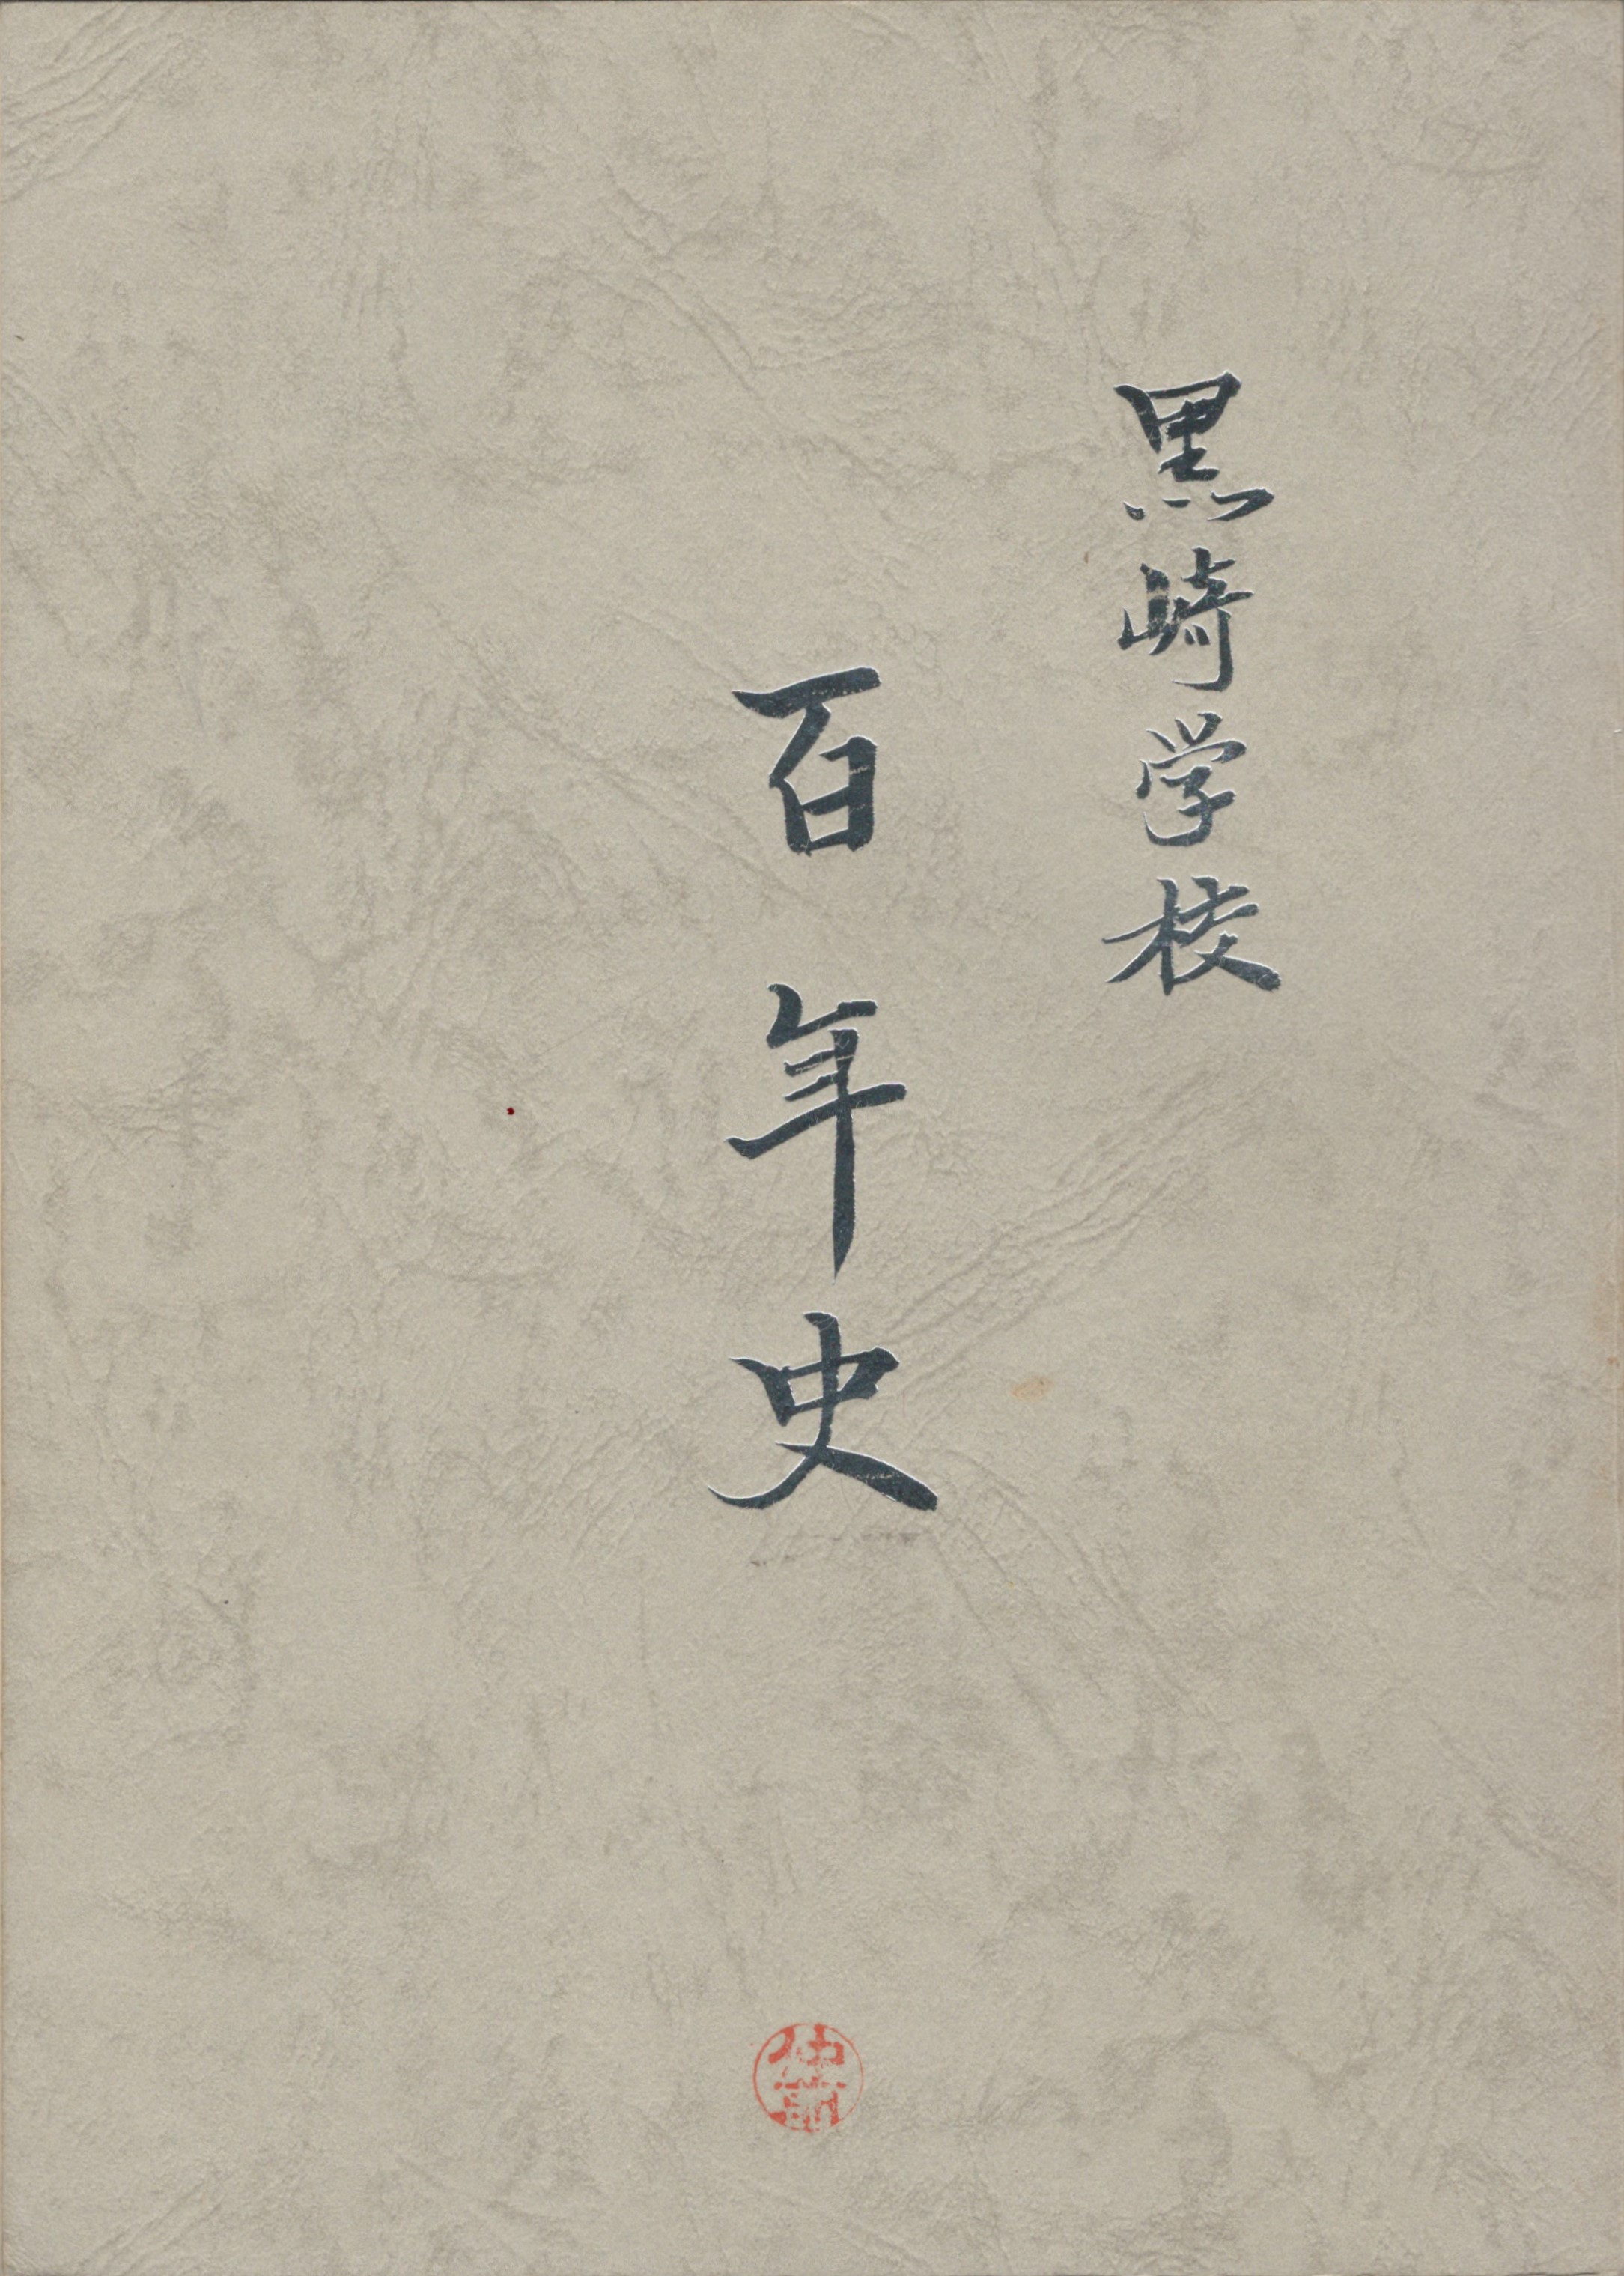 黒崎学校
百年史